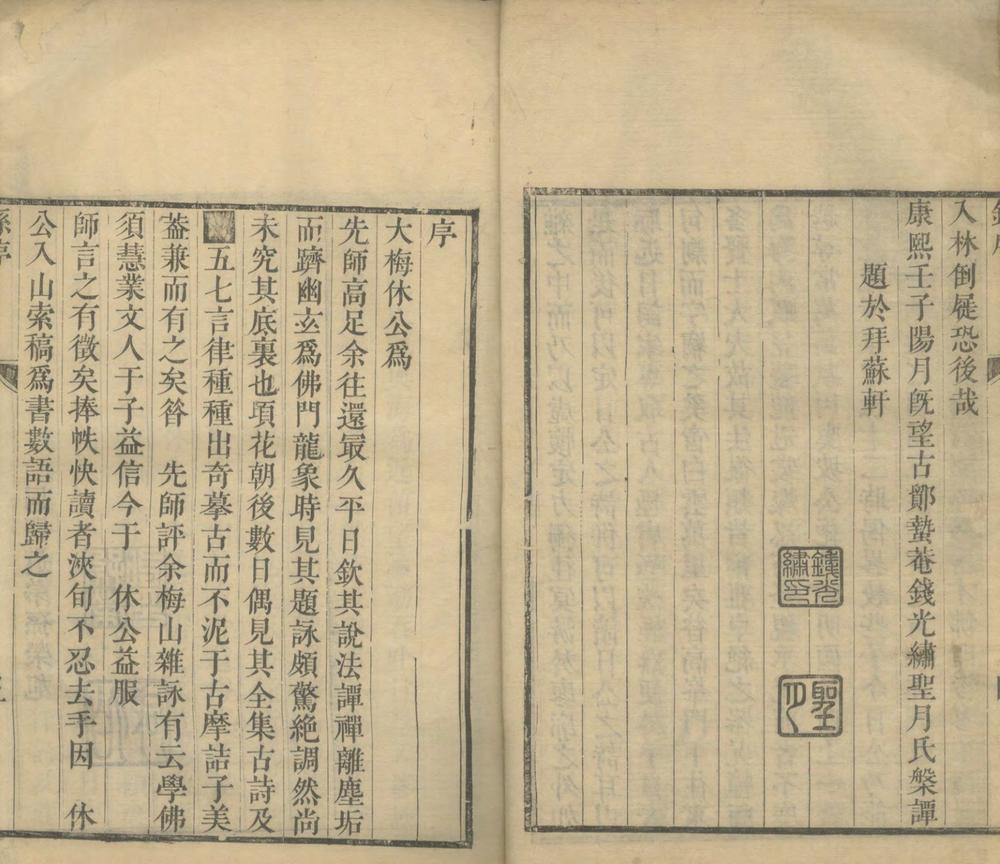 入林倒屣恐後哉
康熙壬子陽月旣望古鄮蟄菴錢光繡聖月氏槃譚
題於拜蘇軒
錢光繡印
聖月
序
大梅休公爲
先師高足余往還最久平日欽其說法譚禪離塵垢
而躋幽玄爲佛門龍象時見其題詠頗驚絶調然尚
未究其底裏也項花朝後數日偶見其全集古詩及
五七言律種種出奇摹古而不泥于古摩詰子美
葢兼而有之矣昝 先師評余梅山雜詠有云學佛
須慧業文人于子益信今于 休公益服
師言之有徵矣捧帙快讀者浹旬不忍去手因 休
公入山索稿爲書數語而歸之